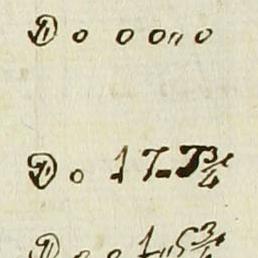 D o o o,, o
D o 1 7 - 7 3/4
D o o 1,, 5 3/4